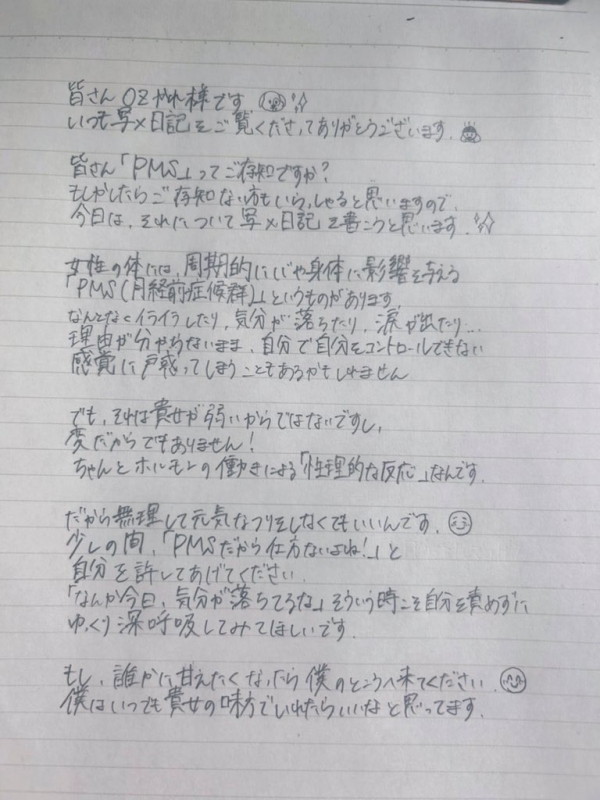 皆さんOZかれ様です
いつも写メ日記をご覧くださってありがとうございます.
皆さん「PMS」ってご存知ですか?
もしかしたらご存知ない方もいらっしゃると思いますので、
今日は、それについて写メ日記を書こうと思います.
女性の体には、周期的に心や身体に影響を与える
「PMS(月経前症候群)」というものがあります.
なんとなくイライラしたり、気分が落ちたり、涙が出たり...
理由が分からないまま、自分で自分をコントロールできない
感覚に戸惑ってしまうこともあるかもしれません
でも、それは貴女が弱いからではないですし、
変だからでもありません!
ちゃんとホルモンの働きによる「性理的な反応」なんです.
だから無理して元気なフリをしなくてもいいんです.
少しの間、「PMSだから仕方ないよね!」と
自分を許してあげてください.
「なんか今日、気分が落ちてるな」そういう時こそ自分を責めずに
ゆっくり深呼吸してみてほしいです.
もし、誰かに甘えたくなったら僕のところへ来てください.
僕はいつでも貴女の味方でいれたらいいなと思ってます.